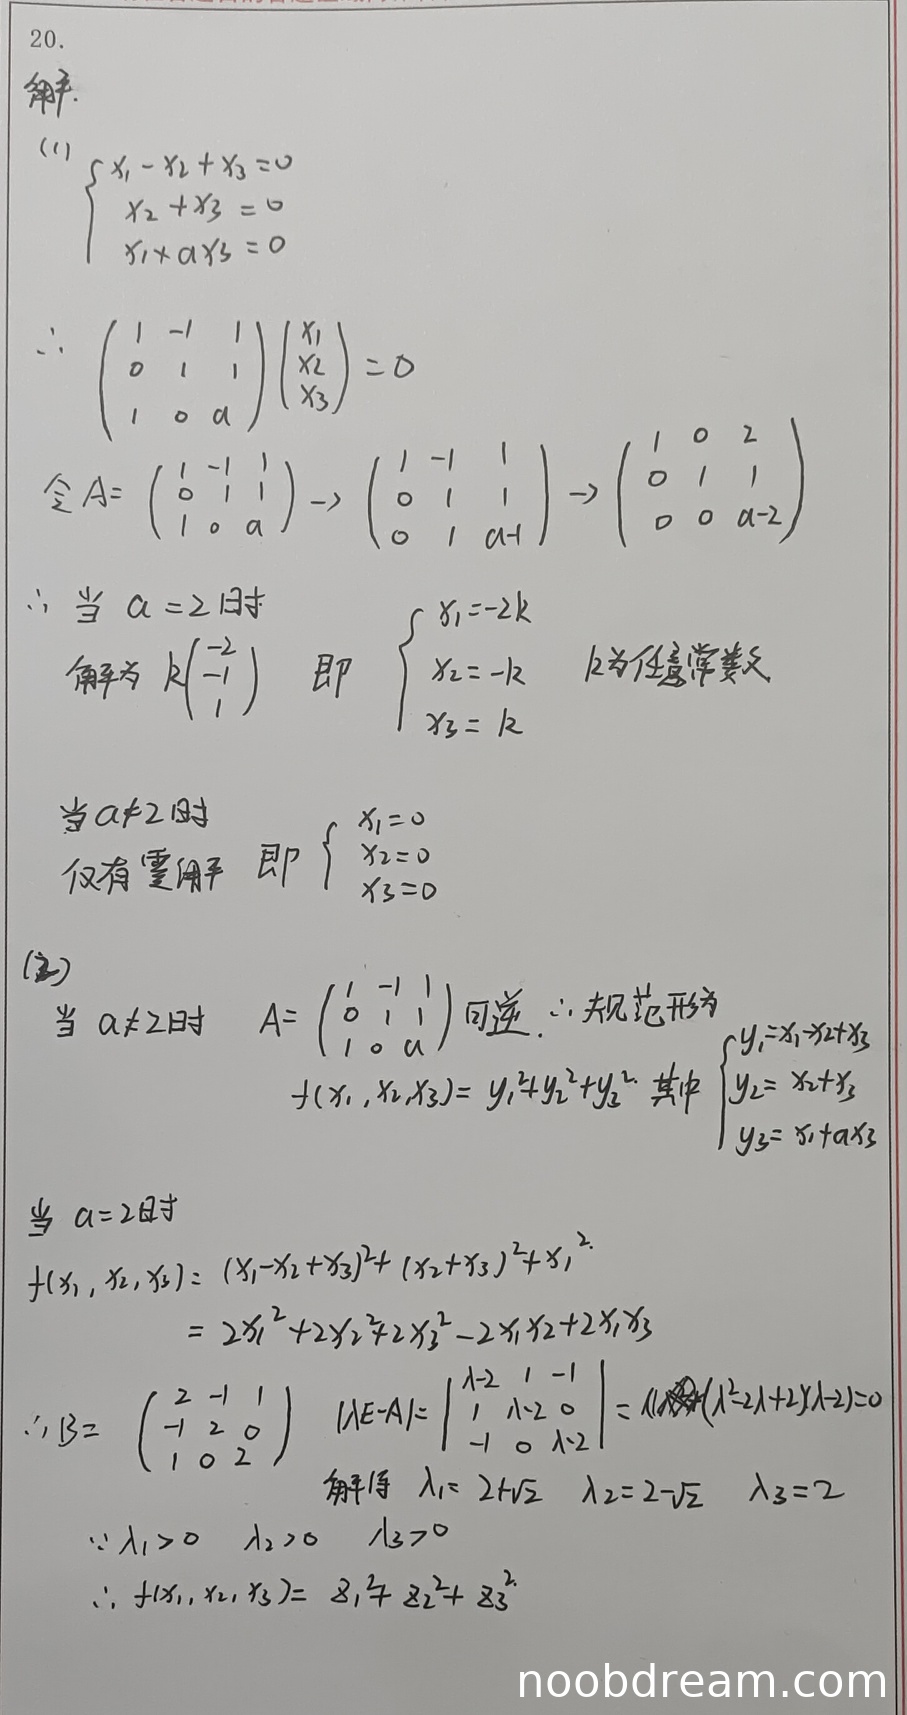 20.
解.
(1)
{ x₁-x₂+x₃=0
x₂+x₃=0
x₁+ax₃=0
∴ ( 1 -1 1
0 1 1
1 0 a ) ( x₁
x₂
x₃ ) = 0
令A= ( 1 -1 1
0 1 1
1 0 a ) → ( 1 -1 1
0 1 1
0 1 a-1 ) → ( 1 0 2
0 1 1
0 0 a-2 )
∴ 当 a=2时
解为 k( -2
-1
1 ) 即 { x₁=-2k
x₂=-k
x₃=k k为任意常数
当a≠2时
仅有零解 即 { x₁=0
x₂=0
x₃=0
(2)
当 a≠2时 A= ( 1 -1 1
0 1 1
1 0 a ) 可逆. ∴规范形为
f(x₁,x₂,x₃)= y₁²+y₂²+y₃². 其中 { y₁=x₁-x₂+x₃
y₂=x₂+x₃
y₃=x₁+ax₃
当 a=2时
f(x₁,x₂,x₃)= (x₁-x₂+x₃)²+(x₂+x₃)²+x₁².
= 2x₁²+2x₂²+2x₃²-2x₁x₂+2x₁x₃
∴B= ( 2 -1 1
-1 2 0
1 0 2 ) |λE-A|= | λ-2 1 -1
1 λ-2 0
-1 0 λ-2 | = (λ²-2λ+2)(λ-2)=0
解得 λ₁=2+√2 λ₂=2-√2 λ₃=2
∵λ₁>0 λ₂>0 λ₃>0
∴ f(x₁,x₂,x₃)= z₁²+z₂²+z₃².
noobdream.com